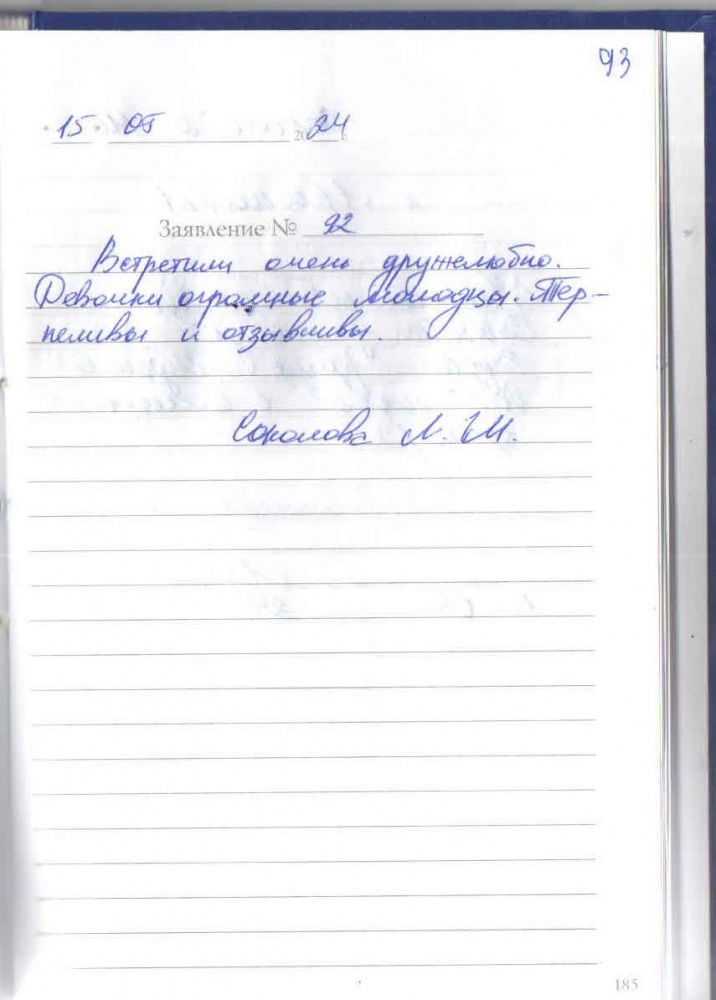 93
15 05 2024 г.
Заявление № 92
Встретили очень дружелюбно.
Девочки огромные молодцы. Тер-
пеливы и отзывчивы.
Соколова Л. М.
185